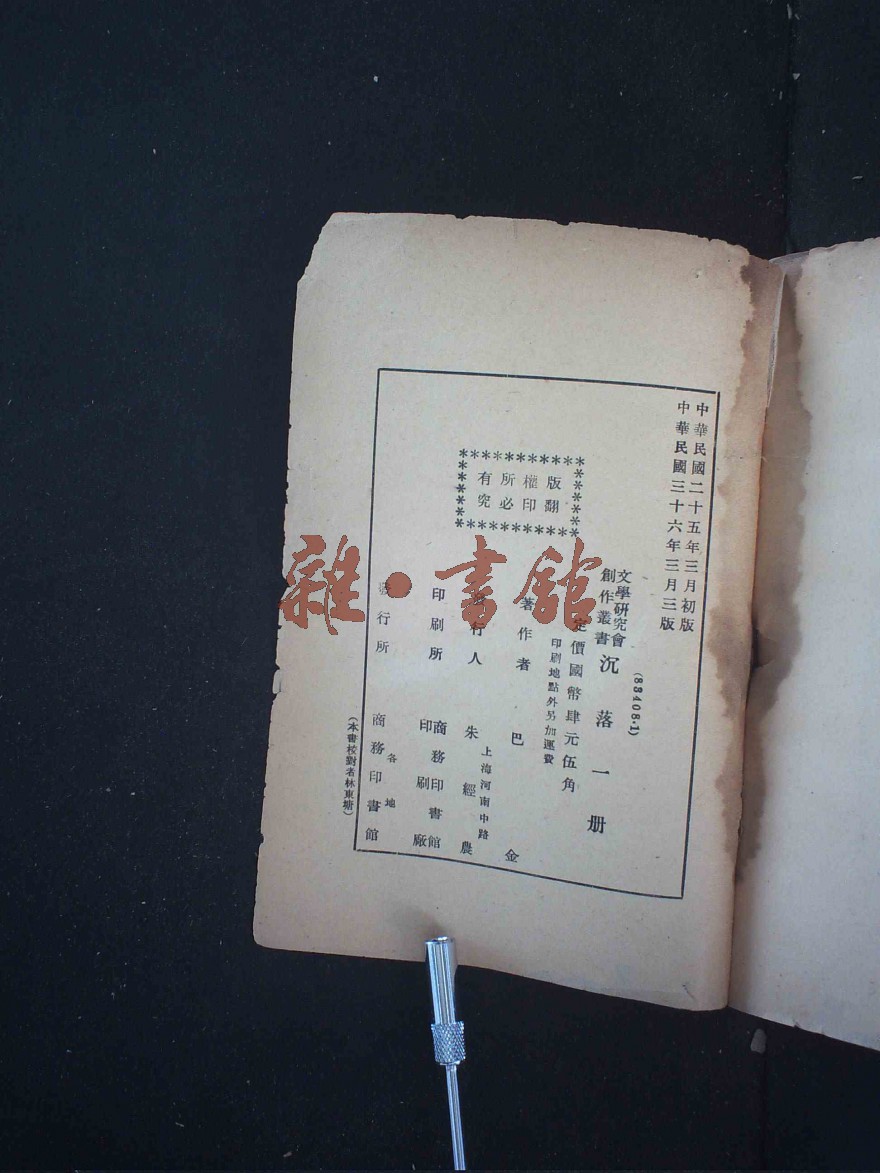 中華民國二十五年三月初版
中華民國三十六年三月三版
(83408.1)
文學研究會
創作叢書
沉落一册
定價國幣肆元伍角
印刷地點外另加運費
版權所有
翻印必究
著作者 巴金
發行人 朱經農
上海河南中路
印刷所 商務印書館
印刷廠
發行所 商務印書館
各地
(本書校對者林東塘)
雜·書館